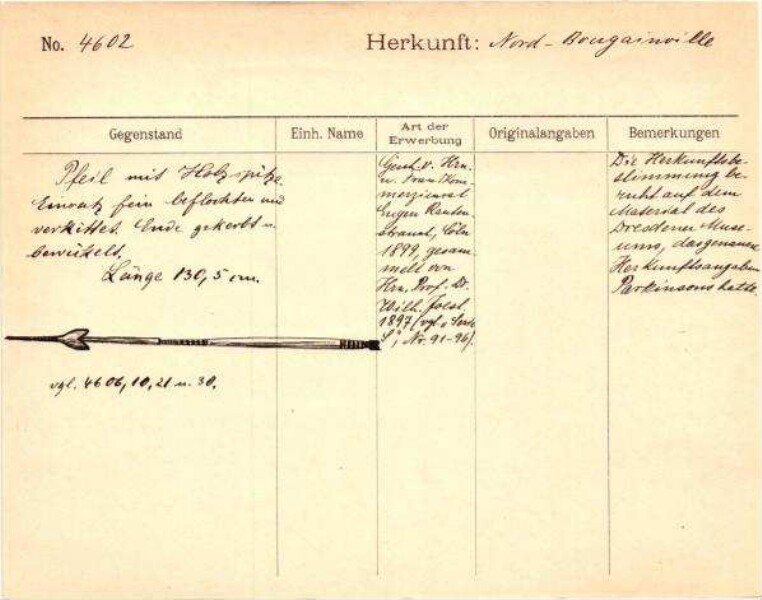 No. 4602
Herkunft: Nord-Bougainville
Gegenstand
Einh. Name
Art der Erwerbung
Originalangaben
Bemerkungen
Pfeil mit Holzspitze.
Einsatz fein beflochten und
verkittet. Ende gekerbt u.
bewickelt.
Länge 130,5 cm.
vgl. 4606, 10, 21 u. 30.
Gesch. v. Hrn.
u. Frau Kom-
merzienrat
Eugen Rauten-
strauch, Cöln
1899, gesam-
melt von
Hrn. Prof. Dr.
Wilh. Joest
1897 (vgl.
Nr. 91-96).
Die Herkunftsbe-
stimmung be-
ruht auf dem
Material des
Dresdener Muse-
ums, das genauere
Herkunftsangaben
Parkinsons hatte.